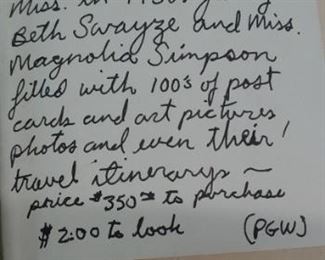 Miss. in 1930's
Beth Swayze and Miss.
Magnolia Simpson
filled with 100's of post
cards and art pictures
photos and even their!
travel itinerarys ~
price $350.00 to purchase
$2.00 to look (PGW)